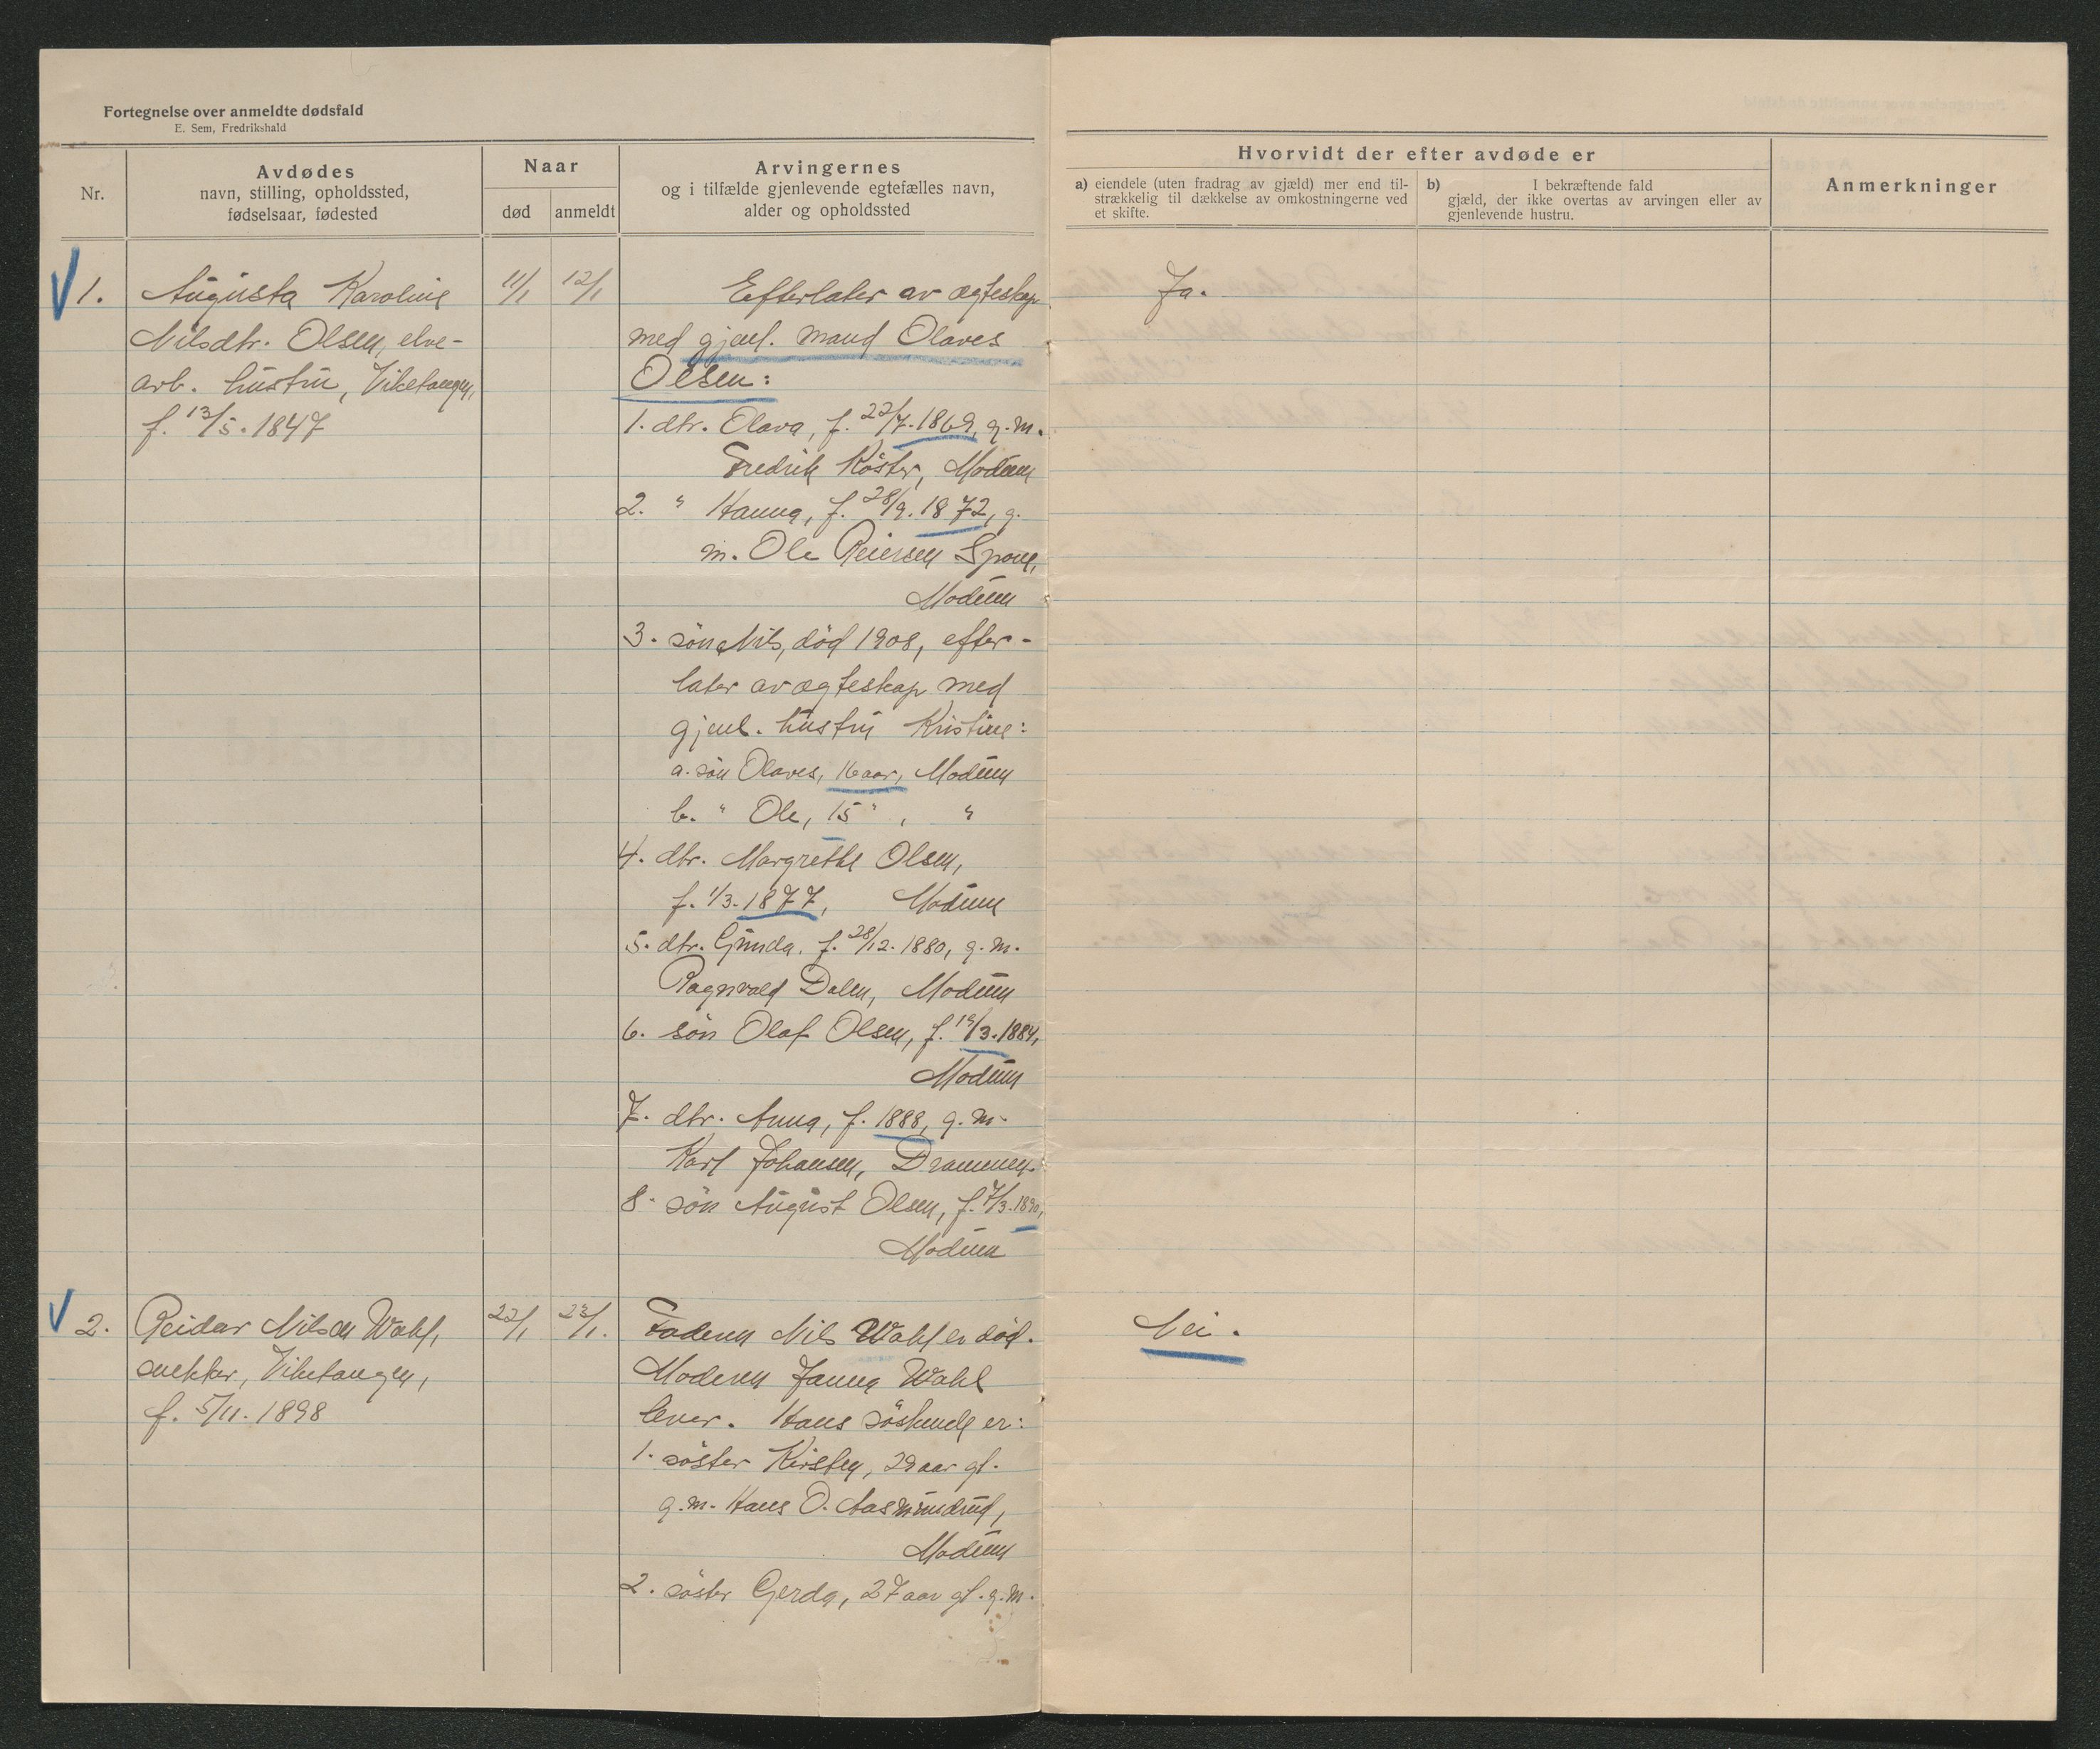 Fortegnelse over anmeldte dødsfald
E. Sem, Fredrikshald
Nr.
Avdødes
navn, stilling, opholdssted,
fødselsaar, fødested
Naar
død
anmeldt
Arvingernes
og i tilfælde gjenlevende egtefælles navn,
alder og opholdssted
Hvorvidt der efter avdøde er
a) eiendele (uten fradrag av gjæld) mer end til-
strækkelig til dækkelse av omkostningerne ved
et skifte.
b) I bekræftende fald
gjæld, der ikke overtas av arvingen eller av
gjenlevende hustru.
Anmerkninger
1. Augusta Karoline
Nilsdtr. Olsen, elve-
arb. hustru, Viketangen,
f. 13/5. 1847
11/1
12/1
Efterlater av ægteskap
med gjenl. mand Olaves
Olsen:
1. dtr. Olava, f. 22/7. 1869, g. m.
Fredrik Köster, Modum
2. " Hanna, f. 28/9. 1872, g.
m. Ole Reiersen Spone,
Modum
3. søn Nils, død 1908, efter-
later av ægteskap med
gjenl. hustru Kristine:
a. søn Olaves, 16 aar, Modum
b. " Ole, 15 " , "
4. dtr. Margrethe Olsen,
f. 1/3. 1877, Modum
5. dtr. Gunda. f. 28/12. 1880, g. m.
Ragnvald Dalen, Modum
6. søn Olaf Olsen, f. 19/3. 1884,
Modum
7. dtr. Anna, f. 1888, g. m.
Karl Johansen, Drammen.
8. søn August Olsen, f. 7/3. 1890,
Modum
Ja.
2. Reidar Nilsen Wahl,
snekker, Viketangen,
f. 5/11. 1898
22/1
23/1.
Faderen Nils Wahl er død.
Moderen Janna Wahl
lever. Hans søskende er:
1. søster Kirsten, 29 aar gl.
g. m. Hans O. Aasmundrud,
Modum
2. søster Gerda, 27 aar gl. g. m.
Nei.